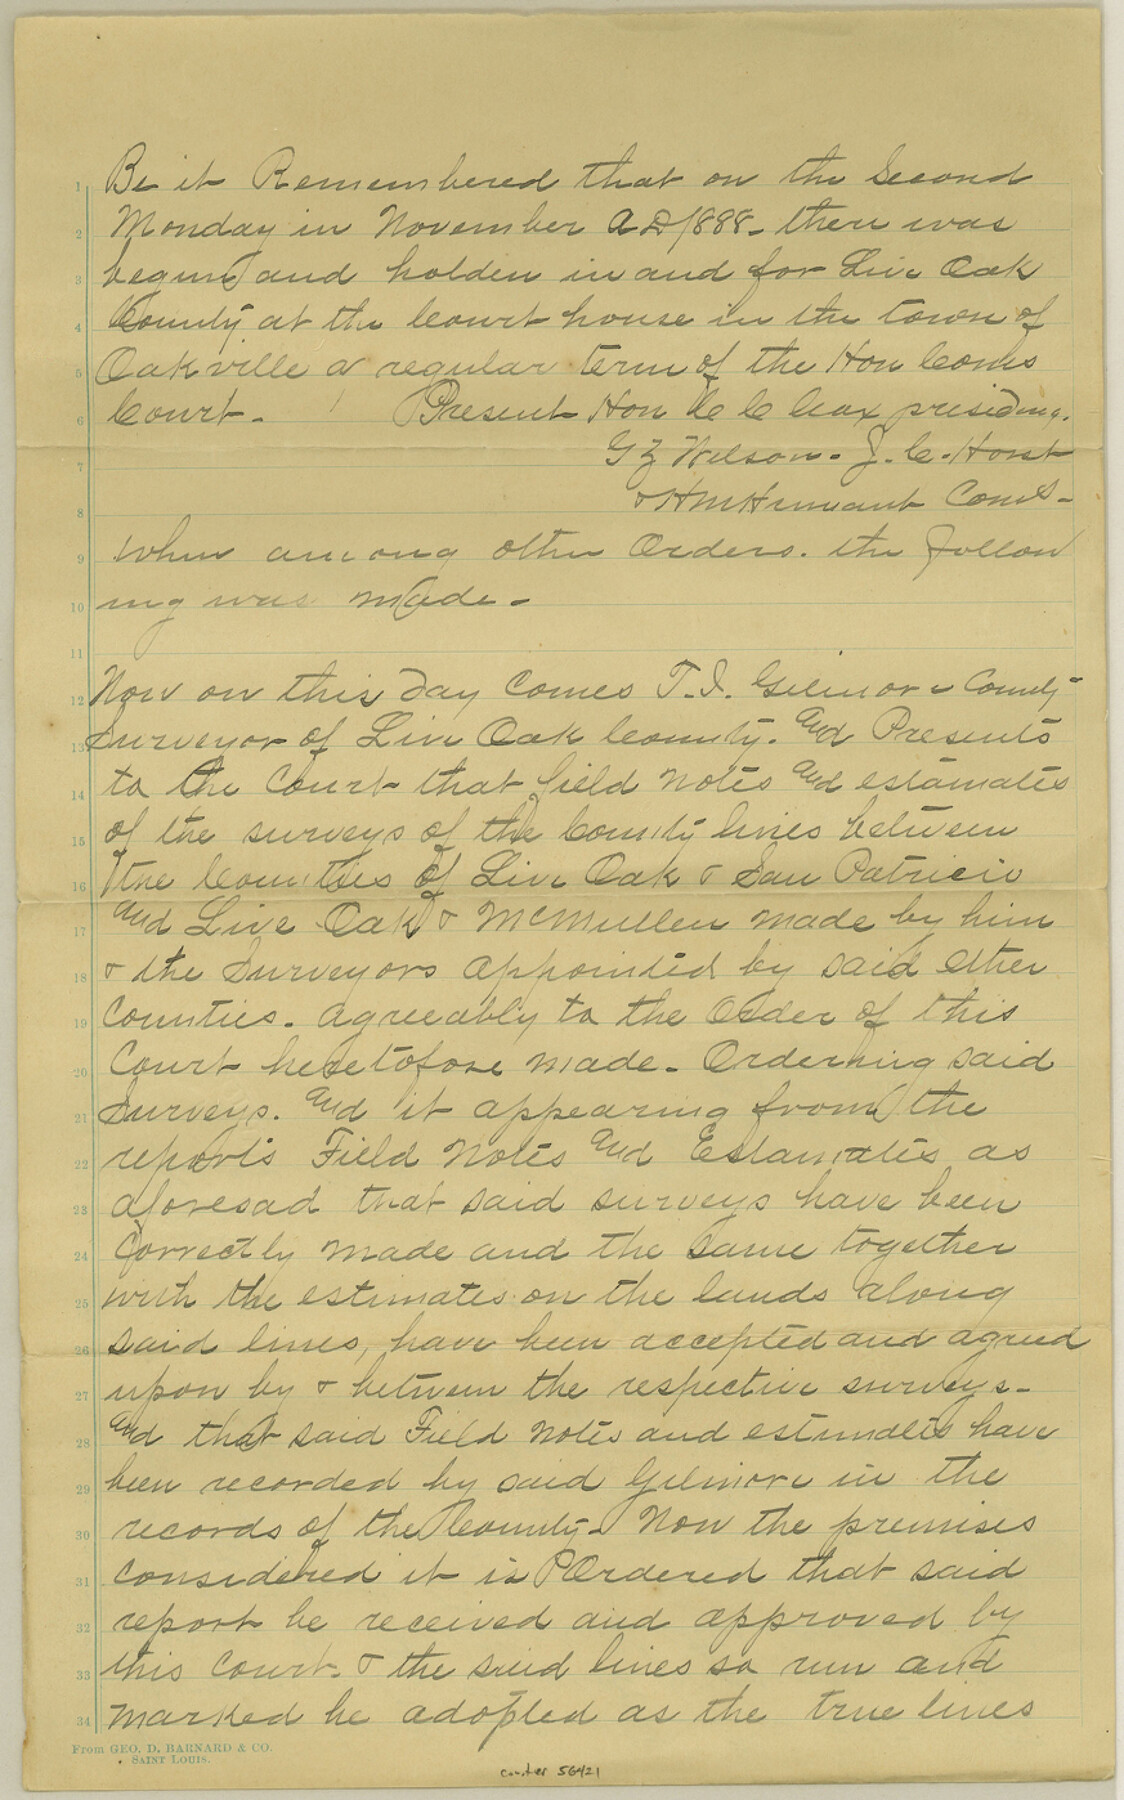 1 Be it Remembered that on the Second
2 Monday in November A D 1888 - there was
3 begun and holden in and for Live Oak
4 County at the Court house in the town of
5 Oakville a regular term of the Hon Coms
6 Court - Present Hon C C Cox presiding.
7 G Z Wilson - J. C. Horst
8 & H M Hinnant Coms -
9 When among other Orders. the follow
10 ing was made -
11
12 Now on this Day Comes T. I. Gilmore County
13 Surveyor of Live Oak County. And Presents
14 to the Court that field Notes and estamates
15 of the surveys of the County lines between
16 the Counties of Live Oak & San Patricio
17 and Live Oak & McMullen made by him
18 & the Surveyors appointed by said other
19 Counties. agreeably to the Order of this
20 Court heretofore made - Ordering said
21 Surveys. And it appearing from the
22 reports Field Notes and Estamates as
23 aforesad that said surveys have been
24 Correctly made and the same together
25 with the estimates on the lands along
26 said lines, have been accepted and agreed
27 upon by & between the respective surveys -
28 and that said Field Notes and estimates have
29 been recorded by said Gilmore in the
30 records of the County - Now the premises
31 Considered it is Ordered that said
32 report be received and approved by
33 this Court. & the said lines so run and
34 marked be adopted as the true lines
From GEO. D. BARNARD & CO.
SAINT LOUIS.
counter 56421